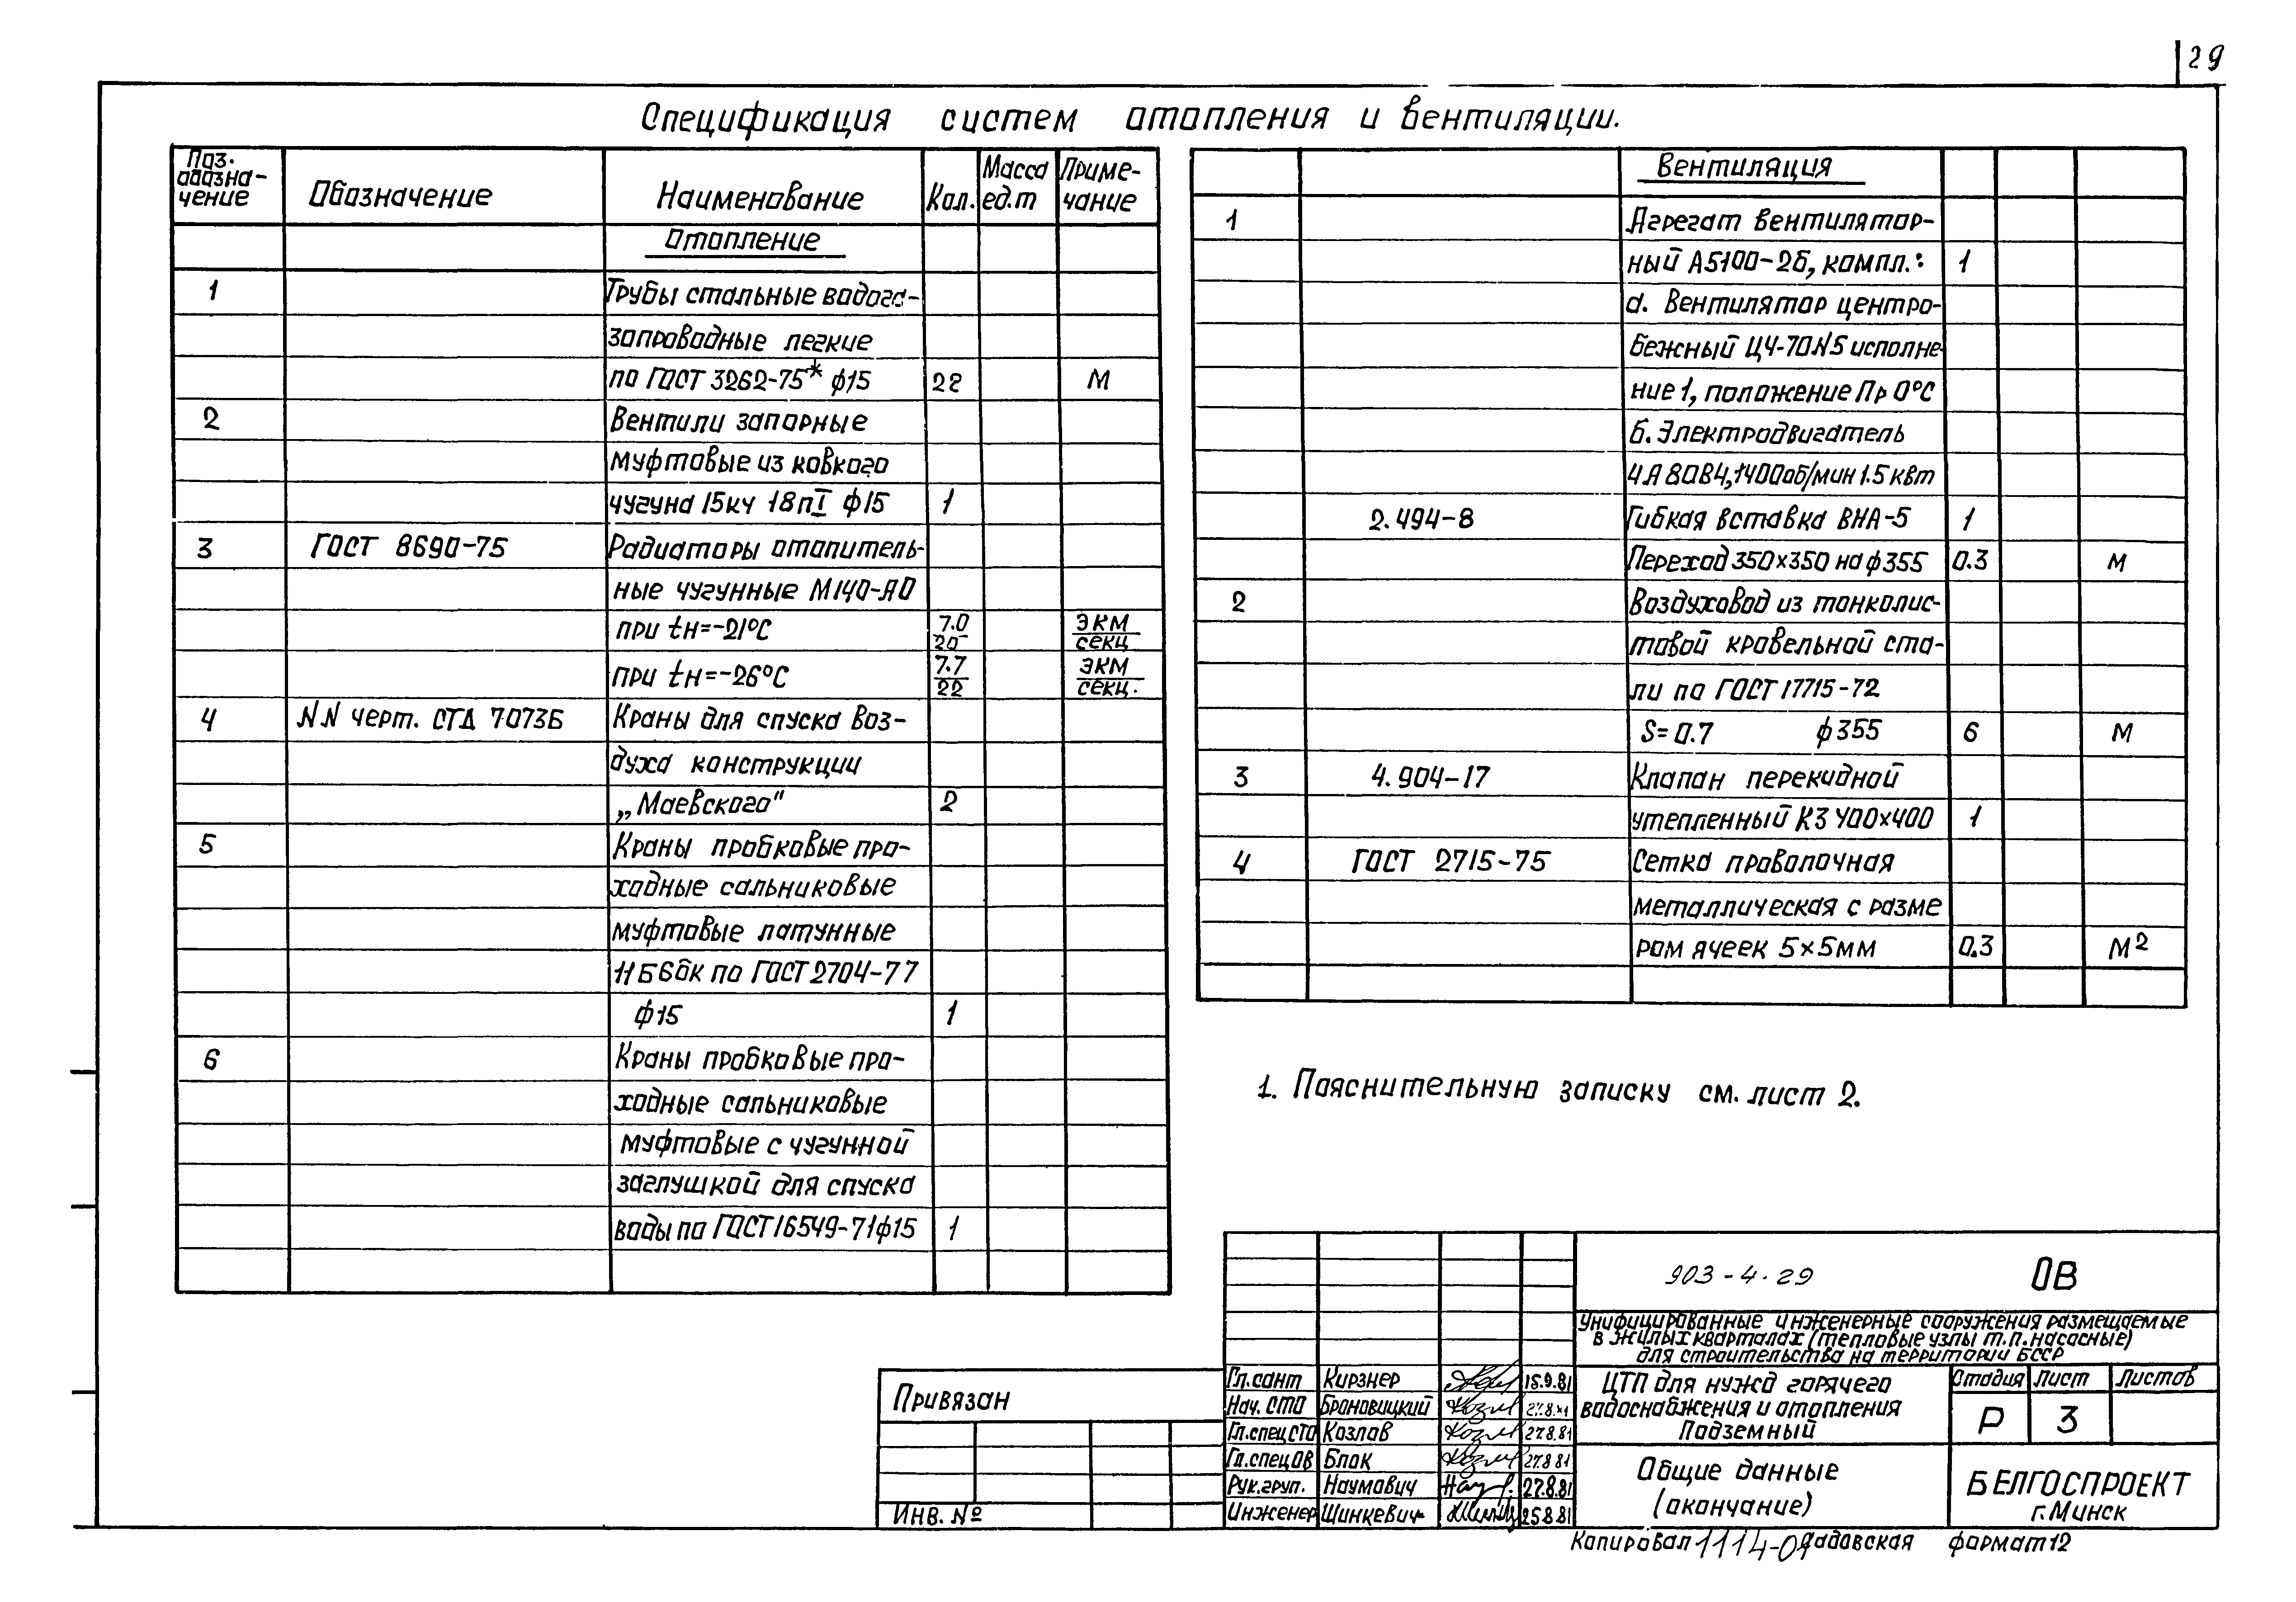 29
Спецификация систем отопления и вентиляции.
Поз. обозна- чение Обозначение Наименование Кол. Масса ед.т Приме- чание
Отопление
1 Трубы стальные водога-
зопроводные легкие
по ГОСТ 3262-75* ф15 22 М
2 Вентили запорные
муфтовые из ковкого
чугуна 15кч 18пI ф15 1
3 ГОСТ 8690-75 Радиаторы отопитель-
ные чугунные М140-АО
при tн=-21°С 7.0/20 ЭКМ/секц
при tн=-26°С 7.7/22 ЭКМ/секц.
4 NN черт. СТД 7073Б Краны для спуска воз-
духа конструкции
„Маевского" 2
5 Краны пробковые про-
ходные сальниковые
муфтовые латунные
11Б6бк по ГОСТ 2704-77
ф15 1
6 Краны пробковые про-
ходные сальниковые
муфтовые с чугунной
заглушкой для спуска
воды по ГОСТ 16549-71 ф15 1
Вентиляция
1 Агрегат вентилятор-
ный А5100-2б, компл.: 1
а. Вентилятор центро-
бежный Ц4-70N5 исполне
ние 1, положение Пр 0°С
б. Электродвигатель
4А80В4, 1400об/мин 1.5 квт
2.494-8 Гибкая вставка ВНА-5 1
Переход 350×350 на ф355 0.3 М
2 Воздуховод из тонколис-
товой кровельной ста-
ли по ГОСТ 17715-72
S=0.7 ф355 6 М
3 4.904-17 Клапан перекидной
утепленный КЗ 400×400 1
4 ГОСТ 2715-75 Сетка проволочная
металлическая с разме
ром ячеек 5×5мм 0.3 М²
1. Пояснительную записку см. лист 2.
903-4.29 ОВ
Унифицированные инженерные сооружения размещаемые
в жилых кварталах (тепловые узлы т.п. насосные)
для строительства на территории БССР
Гл.сант Кирзнер 15.9.81
Нач. СТО Броновицкий 27.8.81
Гл.спец СТО Козлов 27.8.81
Гл.спец ОВ Блок 27.8.81
Рук.груп. Наумович 27.8.81
Инженер Шинкевич 25.8.81
ЦТП для нужд горячего
водоснабжения и отопления
Подземный
Стадия Лист Листов
Р 3
Общие данные
(окончание)
БЕЛГОСПРОЕКТ
г.Минск
Привязан
Инв. №
Копировал 1114-01 формат 12